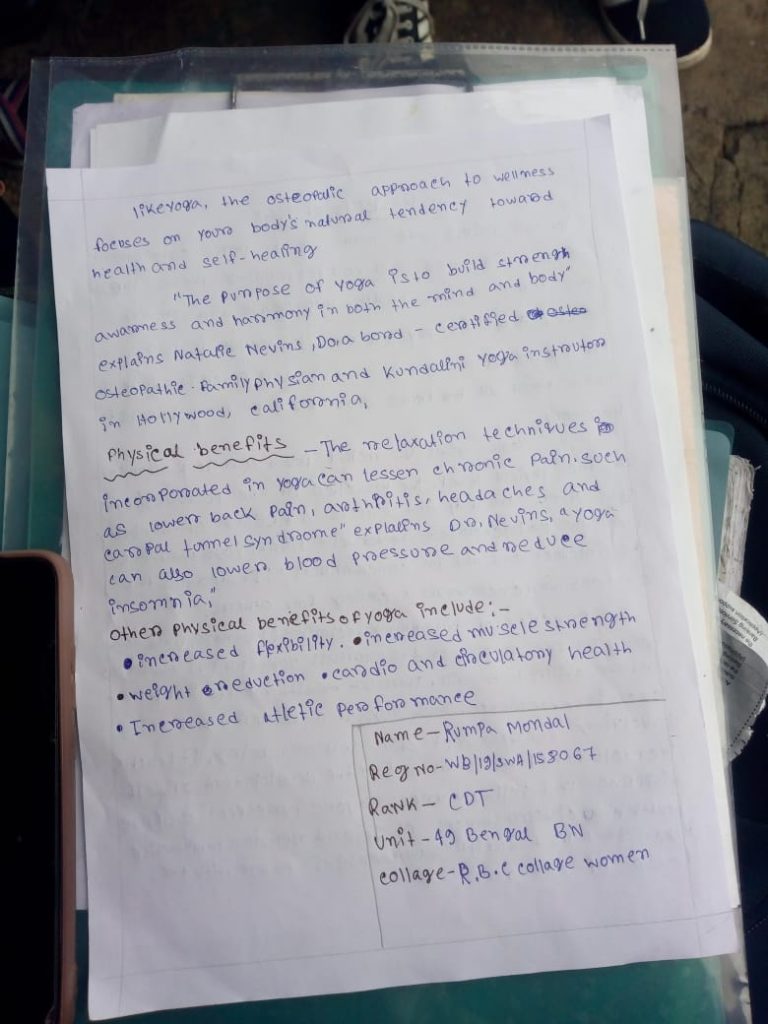 likeyoga, the osteopatic approach to wellness
focuses on your body's natural tendency toward
health and self-healing
"The purpose of yoga is to build strength
awarness and harmony in both the mind and body"
explains Natalie Nevins, Do, a bord - certified osteo
osteopathic family physian and Kundalini yoga instrutor
in Hollywood, california,
Physical benefits - The relaxation techniques
incorporated in yoga can lessen chronic pain. such
as lower back pain, arthritis, headaches and
carpal tunnel syndrome" explains Dr, Nevins, "yoga
can also lower blood pressure and reduce
insomnia,"
others physical benefits of yoga include:-
• increased flexibility. • increased muscle strength
• weight reduction • cardio and circulatory health
• Increased atletic performance
Name - Rumpa Mondal
Reg No - WB/19/SWA/158067
Rank - CDT
Unit - 49 Bengal BN
collage - R.B.C collage women